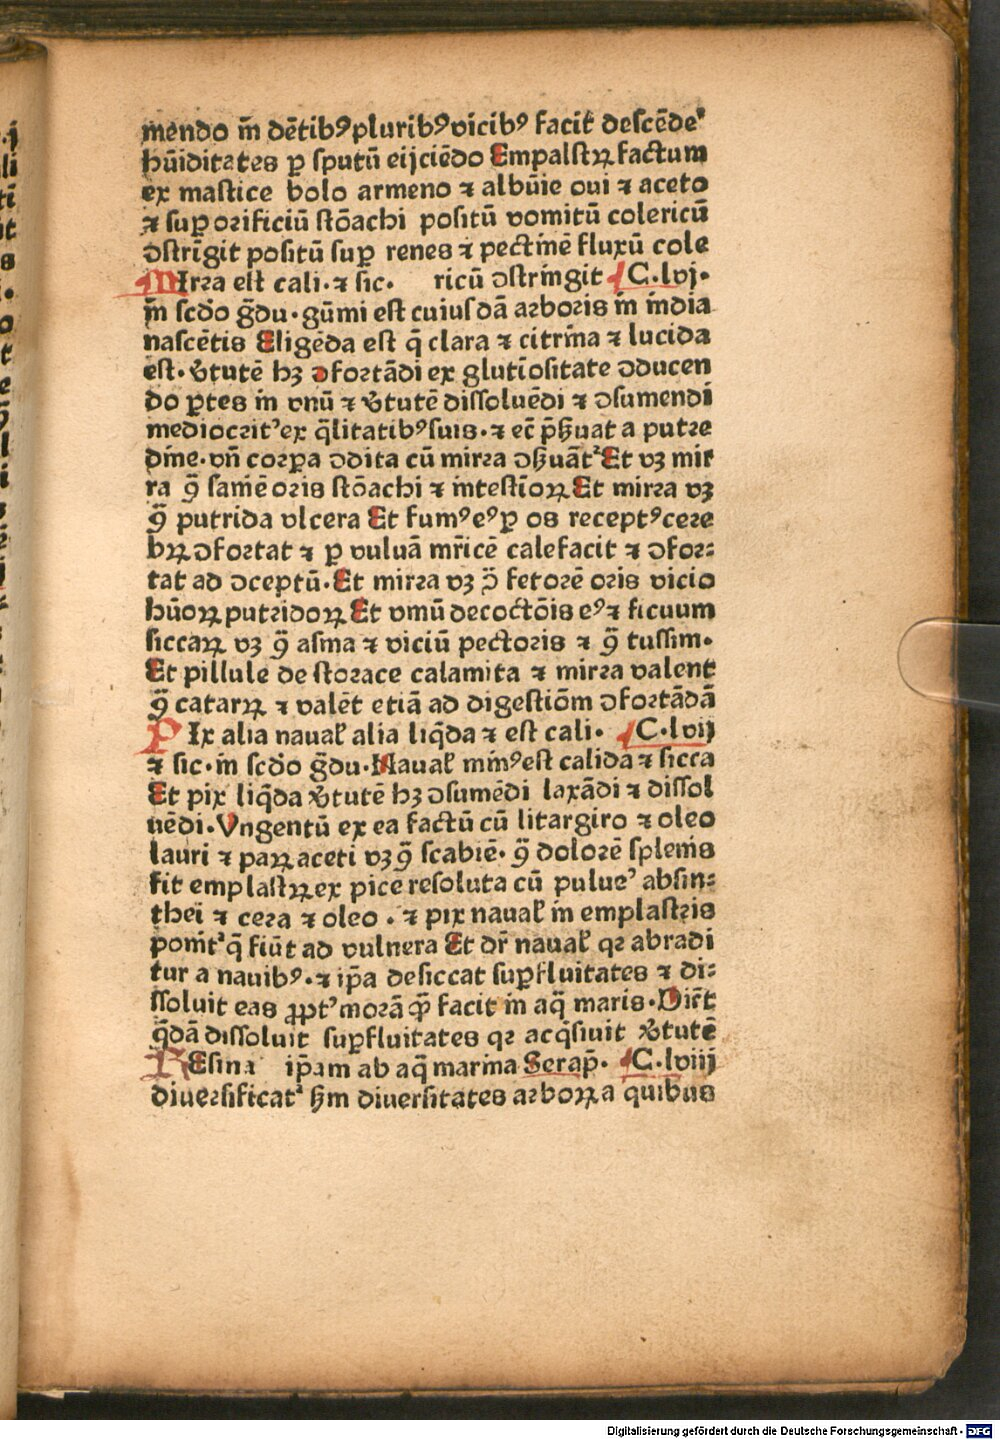 mendo in dētibꝰ pluribꝰ vicibꝰ facit̄ descēde᷑
hūiditates ꝑ sputū eijciēdo Empalstꝝ factum
ex mastice bolo armeno ⁊ albūie oui ⁊ aceto
⁊ suꝑ orificiū stōachi positū vomitū colericū
ꝯstrīgit positū suꝑ renes ⁊ pectinē fluxū cole
Mirra est cali. ⁊ sic. ricū ꝯstringit C.lvj.
in scd̄o gd̄u. gūmi est cuiusdā arboris in india
nascētis Eligēda est q̄ clara ⁊ citrina ⁊ lucida
est. v̄tutē hꝫ ꝯfortādi ex glutīositate ꝯducen
do ꝑtes in vnū ⁊ v̄tutē dissoluēdi ⁊ ꝯsumendi
mediocrit᷑ ex q̄litatibꝰ suis. ⁊ ec̄ p̄ẜuat a putre
dīne. vn̄ corpa ꝯdita cū mirra ꝯẜuāt᷑ Et vꝫ mir
ra ꝯ̄ saniē oris stōachi ⁊ intestīoꝝ Et mirra vꝫ
ꝯ̄ putrida vlcera Et fumꝰ eꝰ ꝑ os receptꝰ cere
bꝝ ꝯfortat ⁊ ꝑ vuluā mr̄icē calefacit ⁊ ꝯfor:
tat ad ꝯceptū. Et mirra vꝫ ꝯ̄ fetorē oris vicio
hūoꝝ putridoꝝ Et vinū decoctōis eꝰ ⁊ ficuum
siccaꝝ vꝫ ꝯ̄ asma ⁊ viciū pectoris ⁊ ꝯ̄ tussim.
Et pillule de storace calamita ⁊ mirra valent
ꝯ̄ catarꝝ ⁊ valēt etiā ad digestiōm ꝯfortādā
PIx alia nauał alia liq̄da ⁊ est cali. C.lvij
⁊ sic. in scd̄o gd̄u. Nauał minꝰ est calida ⁊ sicca
Et pix liq̄da v̄tutē hꝫ ꝯsumēdi laxādi ⁊ dissol
uēdi. Vngentū ex ea factū cū litargiro ⁊ oleo
lauri ⁊ paꝝ aceti vꝫ ꝯ̄ scabiē. ꝯ̄ dolorē splenis
fit emplastꝝ ex pice resoluta cū pulue᷑ absin:
thei ⁊ cera ⁊ oleo . ⁊ pix nauał in emplastris
ponit᷑ q̄ fiūt ad vulnera Et dr̄ nauał qꝛ abradi
tur a nauibꝰ. ⁊ ip̄a desiccat suꝑfluitates ⁊ di:
ssoluit eas ꝓpt᷑ morā q̄ꝫ facit in aq̄ maris. Dic̄t
q̄dā dissoluit suꝑfluitates qꝛ acq̄siuit v̄tutē
REsina ip̄am ab aq̄ marina Serap̄. C.lviij
diuersificat᷑ ẜm diuersitates arboꝝ a quibus